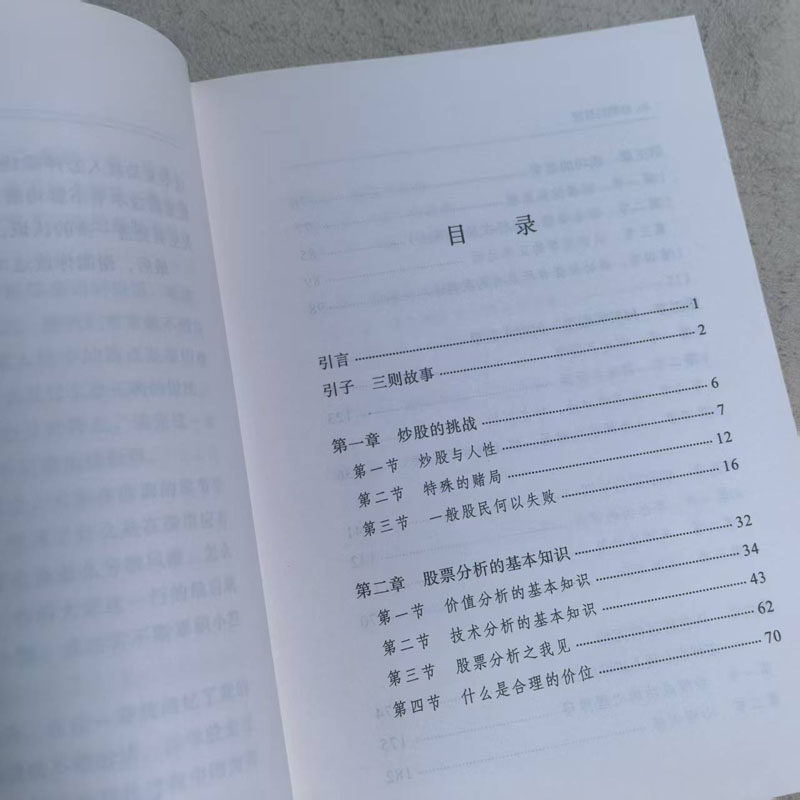 目 录
引言 1
引子 三则故事 2
第一章 炒股的挑战 6
第一节 炒股与人性 7
第二节 特殊的赌局 12
第三节 一般股民何以失败 16
第二章 股票分析的基本知识 32
第一节 价值分析的基本知识 34
第二节 技术分析的基本知识 43
第三节 股票分析之我见 62
第四节 什么是合理的价位 70